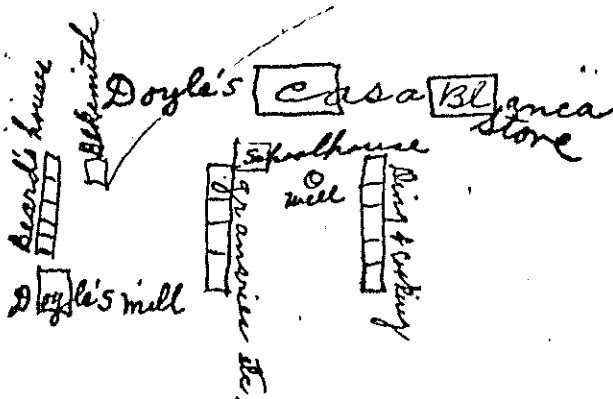 Beard's houses
Blksmith
Doyle's Casa Blanca
Store
Schoolhouse
well
granaries etc
Ding & cooking
Doyle's mill